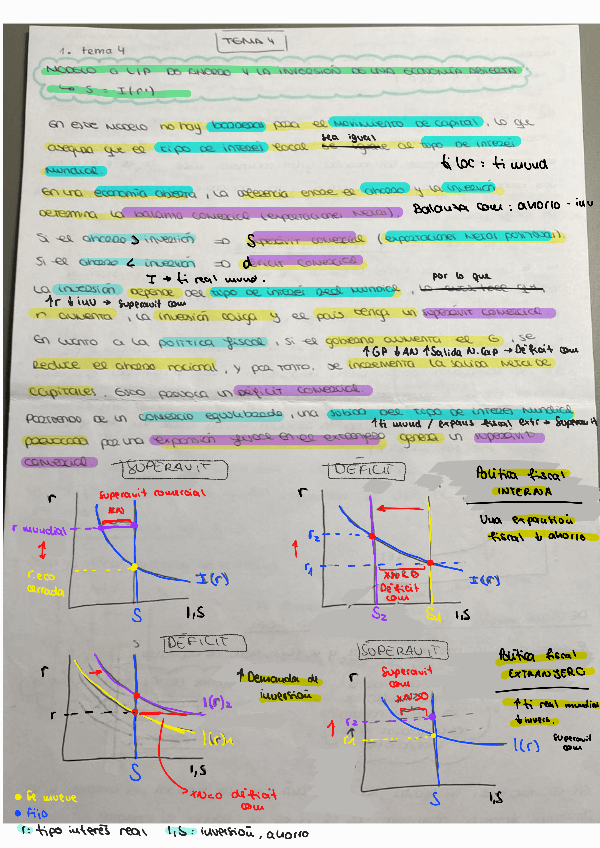 1. tema 4
TEMA 4
MODELO a L/P DO AHORRO Y LA INVERSIÓN DE UNA ECONOMÍA ABIERTA
↳ S = I(r)
En este modelo no hay barreras para el movimiento de capital, lo que
asegura que el tipo de interés local sea igual al tipo de interés
mundial
ti loc : ti mund
En una economía abierta, la diferencia entre el ahorro y la inversión
determina la balanza comercial (exportaciones netas)
Balanza com : ahorro - inv
Si el ahorro > inversión => Superávit comercial (exportaciones netas positivas).
Si el ahorro < inversión => déficit comercial
I → ti real mund.
La inversión depende del tipo de interés real mundial, por lo que
↑r ↓ inv → Superavit com
r aumenta, la inversión caiga y el país tenga un superávit comercial
En cuanto a la política fiscal, si el gobierno aumenta el G, se
↑GP ↓AN ↑Salida N. Cap → Déficit com
reduce el ahorro nacional, y por tanto, se incrementa la salida neta de
capitales. Esto provoca un déficit comercial.
Partiendo de un comercio equilibrado, una subida del tipo de interés mundial
↑ti mund / expans fiscal extr → Superavit
provocada por una expansión fiscal en el extranjero genera un superávit
comercial
SUPERAVIT
r
Superavit comercial
XN
r mundial
r.eco
cerrada
I(r)
S
I,S
DÉFICIT
r
r2
r1
Déficit
com
I(r)
S2
S1
I,S
Política fiscal
INTERNA
Una expansión
fiscal ↓ ahorro
DÉFICIT
S
r
r
I(r)2
I(r)1
S
I,S
↑ Demanda de
inversión
XN<0 déficit
com
SUPERAVIT
r
Superavit
com
XN>0
r2
r1
I(r)
S
I,S
Política fiscal
EXTRANJERO
↑ ti real mundial
↓ invers.
Superavit
com
Se mueve
Fijo
r: tipo interés real I,S: inversión, ahorro